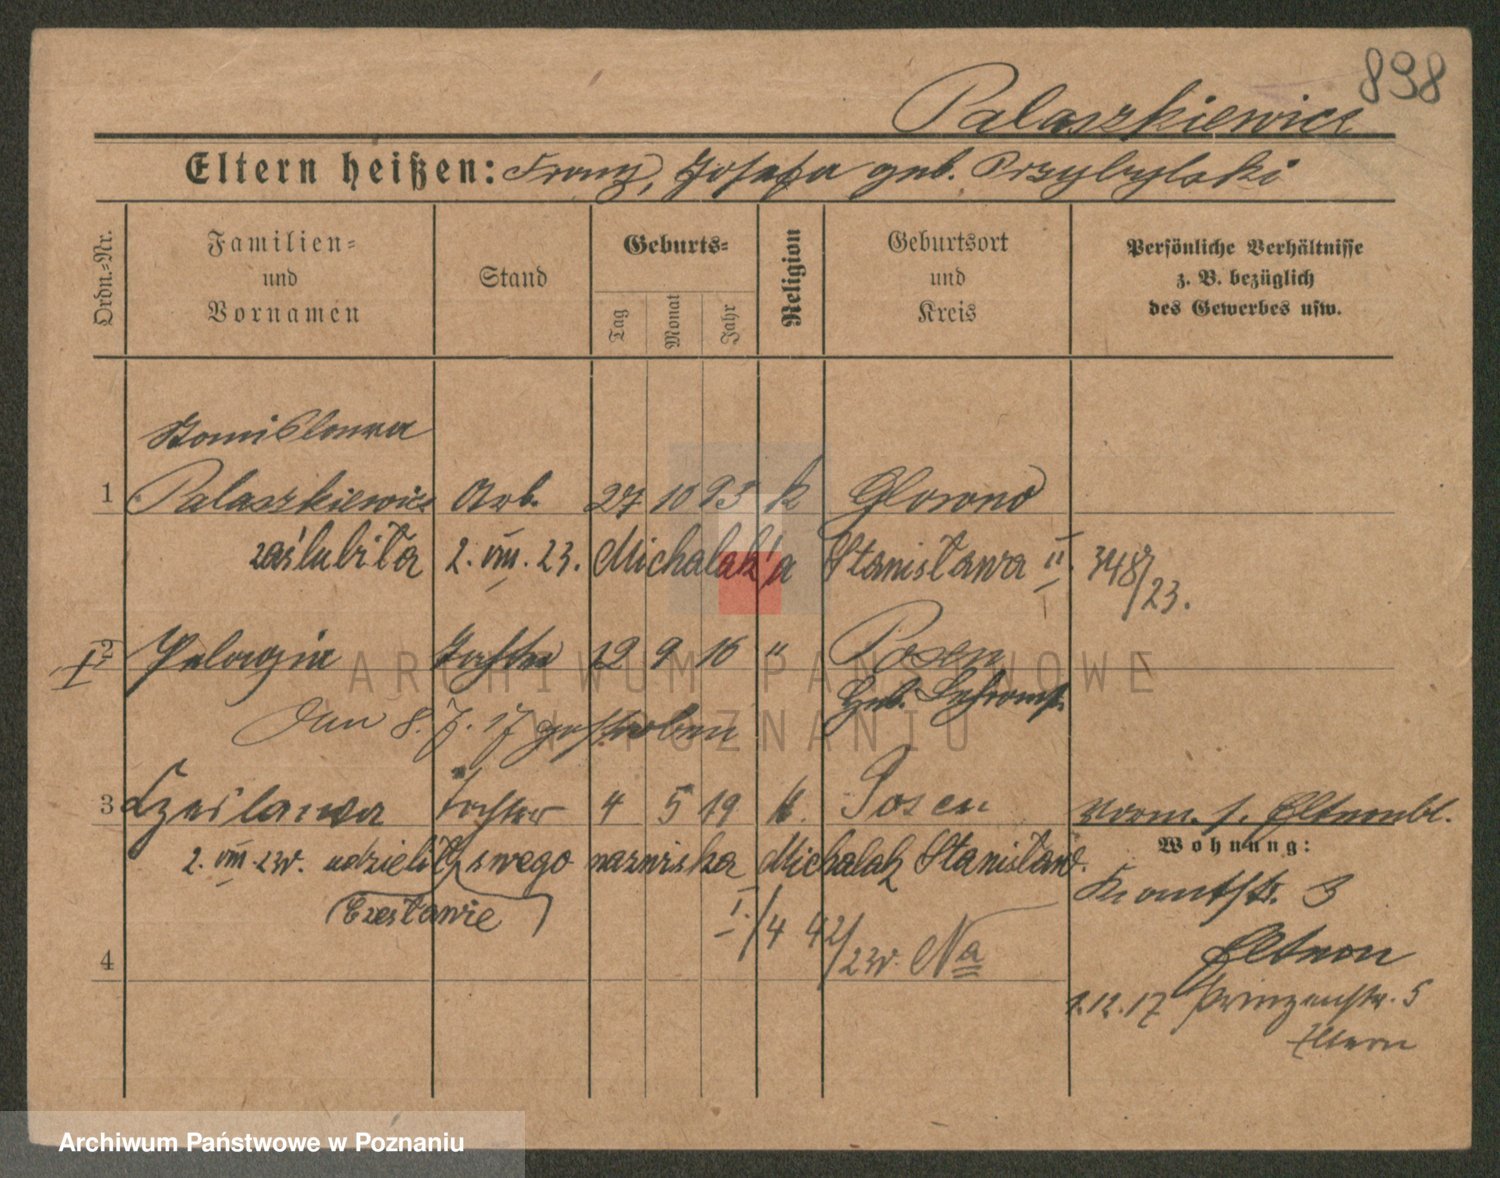 898
Palaszkiewicz
Eltern heißen: Franz, Josefa geb. Przybylski
Ordn.-Nr.
Familien-
und
Vornamen
Stand
Geburts-
Tag
Monat
Jahr
Religion
Geburtsort
und
Kreis
Persönliche Verhältnisse
z. B. bezüglich
des Gewerbes usw.
Stanislawa
1 Palaszkiewicz Arb. 27 10 95 k
zaślubiła 2. VIII. 23. Michalak'a Stanisława II. 348/23.
I 2 Pelagia Tochter 12 9 16 " Posen
Den 8. 7. 17 gestorben
3 Czeslawa Tochter 4 5 19 k. Posen
2. VIII. 23r. udzielił swego nazwiska Michalak Stanisław.
Wohnung:
(Czesławie) I./4 42/23r. Na
3
Eltern
4
1.12.17 Prinzenstr. 5
Eltern
ARCHIWUM PAŃSTWOWE
W POZNANIU
Archiwum Państwowe w Poznaniu